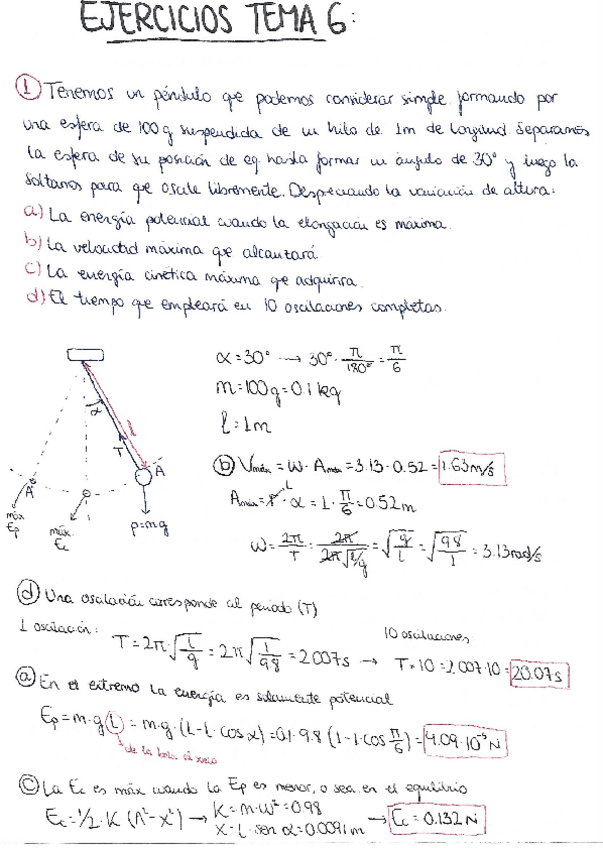 EJERCICIOS TEMA 6:
① Tenemos un péndulo que podemos considerar simple, formando por
una esfera de 100g suspendida de un hilo de 1m de longitud. Separamos
la esfera de su posición de eq. hasta formar un ángulo de 30° y luego la
soltamos para que oscile libremente. Despreciando la variación de altura:
a) La energía potencial cuando la elongación es máxima.
b) La velocidad máxima que alcanzará
c) La energía cinética máxima que adquirirá.
d) El tiempo que empleará en 10 oscilaciones completas.
α = 30° → 30° · π/180° = π/6
m = 100g = 0.1 kg
l = 1m
α
l
T
A
A'
máx Ep
máx Ec
p=mg
ⓑ Vmáx = W · Amáx = 3.13 · 0.52 = 1.63 m/s
L
Amáx = r · α = 1 · π/6 = 0.52 m
W = 2π/T = 2π/2π√l/g = √g/l = √9.8/1 = 3.13 rad/s
ⓓ Una oscilación corresponde al periodo (T)
1 oscilación: T = 2π · √l/g = 2π √1/9.8 = 2.007 s → 10 oscilaciones T · 10 = 2.007 · 10 = 20.07 s
ⓐ En el extremo la energía es solamente potencial
Ep = m · g (L) = m · g · (L - L · cos α) = 0.1 · 9.8 (1 - 1 · cos π/6) = 4.09 · 10⁻³ N
de la bola al suelo
ⓒ La Ec es máx cuando la Ep es menor, o sea, en el equilibrio
Ec = 1/2 · K (A² - x²) → K = m · w² = 0.98
x = L · sen α = 0.0091 m → Ec = 0.132 N